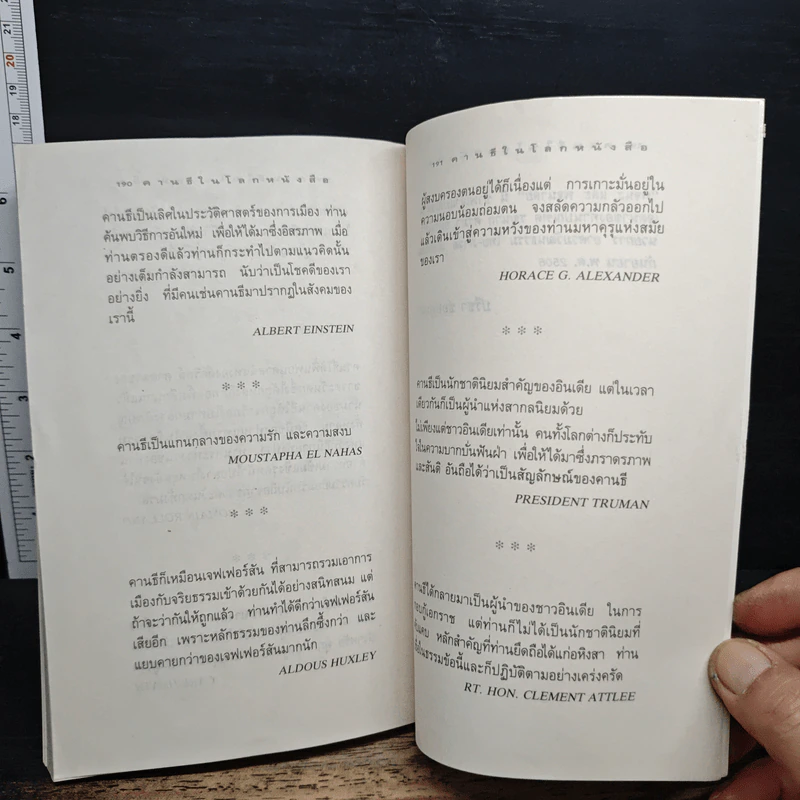 ๑๙๐ คานธีในโลกหนังสือ
คานธีเป็นเลิศในประวัติศาสตร์ของการเมือง ท่าน
ค้นพบวิธีการอันใหม่ เพื่อให้ได้มาซึ่งอิสรภาพ เมื่อ
ท่านตรองดีแล้วท่านก็กระทำไปตามแนวคิดนั้น
อย่างเต็มกำลังสามารถ นับว่าเป็นโชคดีของเรา
อย่างยิ่ง ที่มีคนเช่นคานธีมาปรากฏในสังคมของ
เรานี้
ALBERT EINSTEIN
***
คานธีเป็นแกนกลางของความรัก และความสงบ
MOUSTAPHA EL NAHAS
***
คานธีก็เหมือนเจฟเฟอร์สัน ที่สามารถรวมเอาการ
เมืองกับจริยธรรมเข้าด้วยกันได้อย่างสนิทสนม แต่
ถ้าจะว่ากันให้ถูกแล้ว ท่านทำได้ดีกว่าเจฟเฟอร์สัน
เสียอีก เพราะหลักธรรมของท่านลึกซึ้งกว่า และ
แยบคายกว่าของเจฟเฟอร์สันมากนัก
ALDOUS HUXLEY
๑๙๑ คานธีในโลกหนังสือ
ผู้สงบครองตนอยู่ได้ก็เนื่องแต่ การเกาะมั่นอยู่ใน
ความนอบน้อมถ่อมตน จงสลัดความกลัวออกไป
แล้วเดินเข้าสู่ความหวังของท่านมหาคุรุแห่งสมัย
ของเรา
HORACE G. ALEXANDER
***
คานธีเป็นนักชาตินิยมสำคัญของอินเดีย แต่ในเวลา
เดียวกันก็เป็นผู้นำแห่งสากลนิยมด้วย
ไม่เพียงแต่ชาวอินเดียเท่านั้น คนทั้งโลกต่างก็ประทับ
ใจในความบากบั่นฟันฝ่า เพื่อให้ได้มาซึ่งภราดรภาพ
และสันติ อันถือได้ว่าเป็นสัญลักษณ์ของคานธี
PRESIDENT TRUMAN
***
คานธีได้กลายมาเป็นผู้นำของชาวอินเดีย ในการ
กอบกู้เอกราช แต่ท่านก็ไม่ได้เป็นนักชาตินิยมที่
คับแคบ หลักสำคัญที่ท่านยึดถือได้แก่อหิงสา ท่าน
ในธรรมข้อนี้และก็ปฏิบัติตามอย่างเคร่งครัด
RT. HON. CLEMENT ATTLEE
18
19
20
2
3
4
5